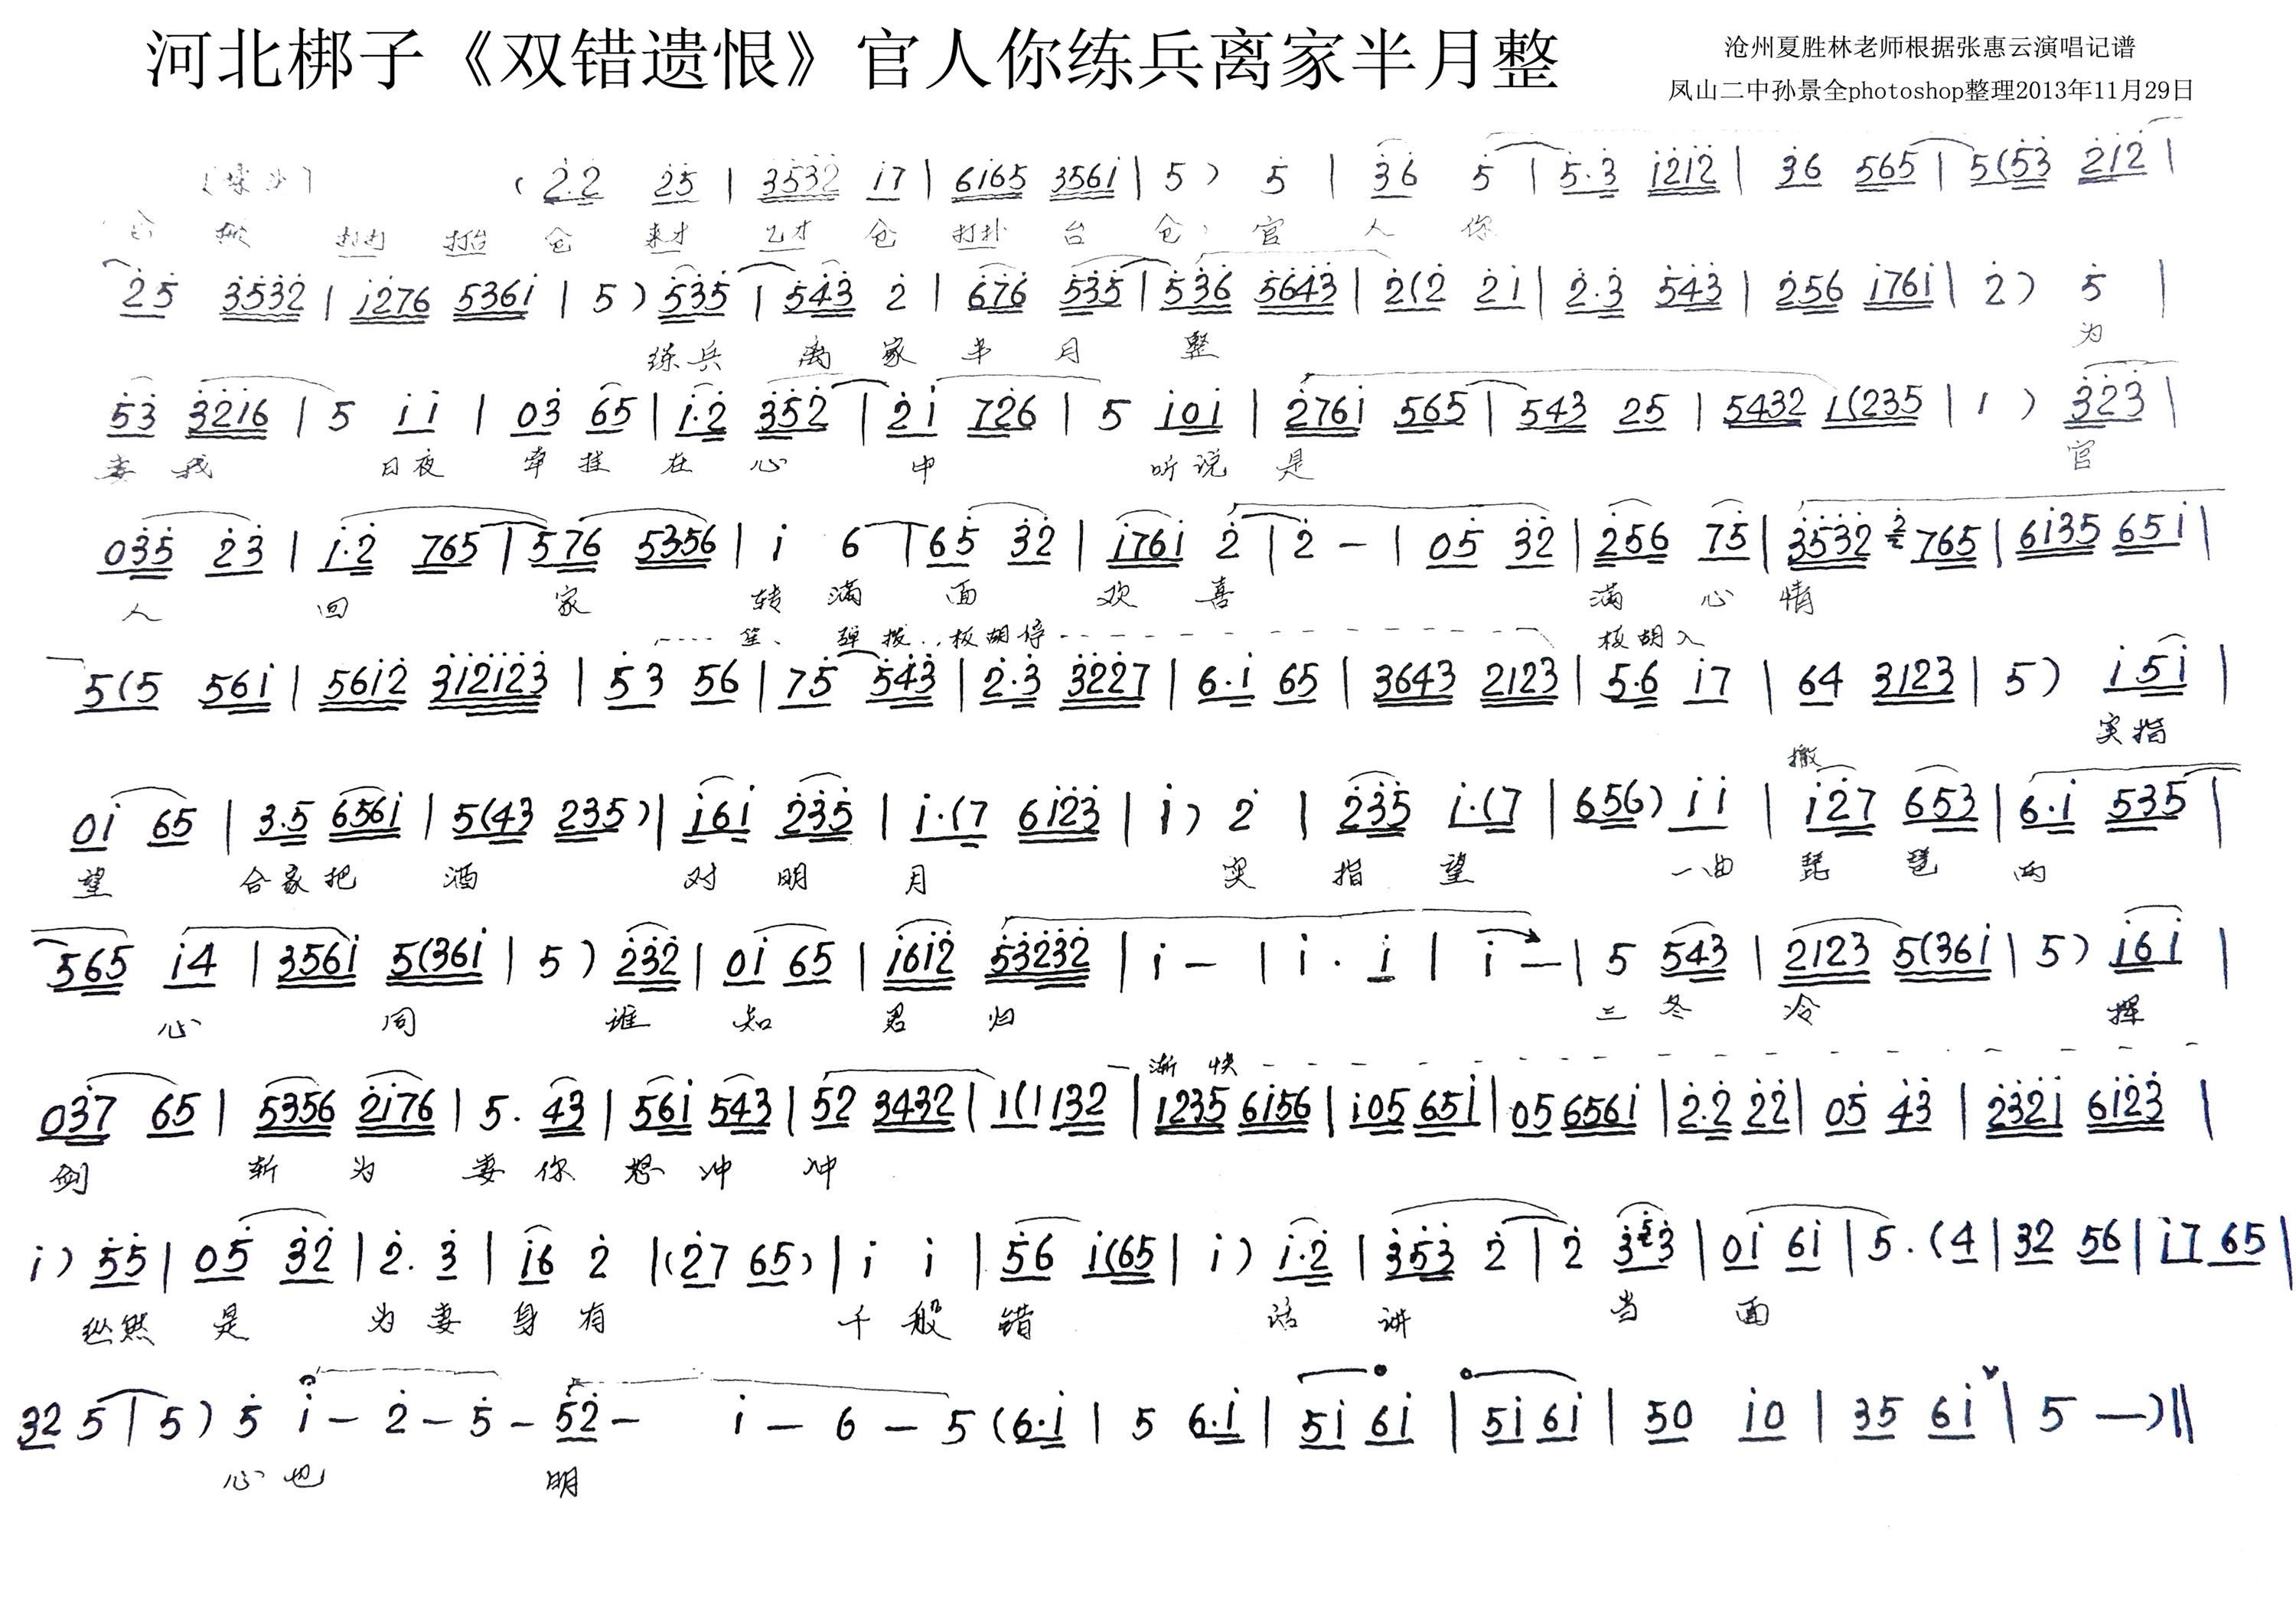 河北梆子《双错遗恨》官人你练兵离家半月整
沧州夏胜林老师根据张惠云演唱记谱
凤山二中孙景全photoshop整理2013年11月29日
( 2̇.2̇ 2̇5̇ | 3̇5̇3̇2̇ i7 | 6i65 356i | 5 ) 5̇ | 3̇6 5̇ | 5̇.3̇ i2̇i2̇ | 3̇6 565 | 5(5̇3̇ 2̇i2̇ |
仓 打打 打台 仓 来才 乙才 仓 打扑 台 仓 官 人 你
2̇5̇ 3̇5̇3̇2̇ | i2̇76 536i | 5 ) 5̇3̇5̇ | 5̇4̇3̇ 2̇ | 67̇6 5̇3̇5̇ | 5̇3̇6̇ 5̇6̇4̇3̇ | 2̇(2̇ 2̇i | 2̇.3̇ 5̇4̇3̇ | 2̇56 i76i | 2̇ ) 5̇ |
练兵 离 家 半 月 整 为
5̇3̇ 3̇2̇i6 | 5 i i | 03̇ 65 | i.2̇ 3̇5̇2̇ | 2̇i 72̇6 | 5 i0i | 2̇76i 565 | 543 25 | 5432 1(235 | 1 ) 3̇2̇3̇ |
妻 我 日夜 牵 挂 在 心 中 听说 是 官
03̇5̇ 2̇3̇ | i.2̇ 765 | 576 5356 | i 6 | 65̇ 3̇2̇ | i76i 2̇ | 2̇ — | 05̇ 3̇2̇ | 2̇56 75̇ | 3̇5̇3̇2̇ 2̇ 765 | 6i35 65i |
人 回 家 转 满 面 欢 喜 满 心 情
笙、弹拨..板胡停 板胡入
5(5 56i | 56i2̇ 3̇i2̇i2̇3̇ | 5̇3 56 | 75̇ 5̇4̇3̇ | 2̇.3̇ 3̇2̇2̇7 | 6.i 65 | 3643 2123 | 5.6 i7 | 64 3123 | 5 ) i5̇i |
实指
撤
0i 65 | 3.5 656i | 5(43 235) | i6i 2̇3̇5̇ | i.(7 6i2̇3̇ | i ) 2̇ | 2̇3̇5̇ i.(7 | 656) i i | i2̇7 653 | 6.i 535 |
望 合家把 酒 对 明 月 实 指 望 一曲 琵 琶 两
565 i4 | 356i 5(36i | 5 ) 2̇3̇2̇ | 0i 65 | i6i2̇ 5̇3̇2̇3̇2̇ | i — | i . i | i — | 5 543 | 2123 5(36i | 5 ) i6i |
心 同 谁 知 君 归 三 冬 冷 挥
渐 快
03̇7 65 | 5356 2̇i76 | 5. 43 | 56i 543 | 52 3432 | 1(1 132 | 1235 6i56 | i05 65i | 05 656i | 2̇.2̇ 2̇2̇ | 05̇ 4̇3̇ | 2̇3̇2̇i 6i2̇3̇ |
剑 斩 为 妻 你 怒 冲 冲
i ) 5̇5̇ | 05̇ 3̇2̇ | 2̇. 3̇ | i6 2̇ | (2̇7 65) | i i | 5̇6 i(65 | i ) i.2̇ | 3̇5̇3̇ 2̇ | 2̇ 3̇5̇3̇ | 0i 6i | 5. (4 | 32 56 | i7 65 |
纵然 是 为 妻 身 有 千 般 错 话 讲 当 面
32 5 | 5 ) 5̇ i — 2̇ — 5̇ — 5̇2̇ — i — 6 — 5 (6.i | 5 6.i | 5i 6i | 5i 6i | 50 i0 | 35 6i | 5 —)‖
心 也 明